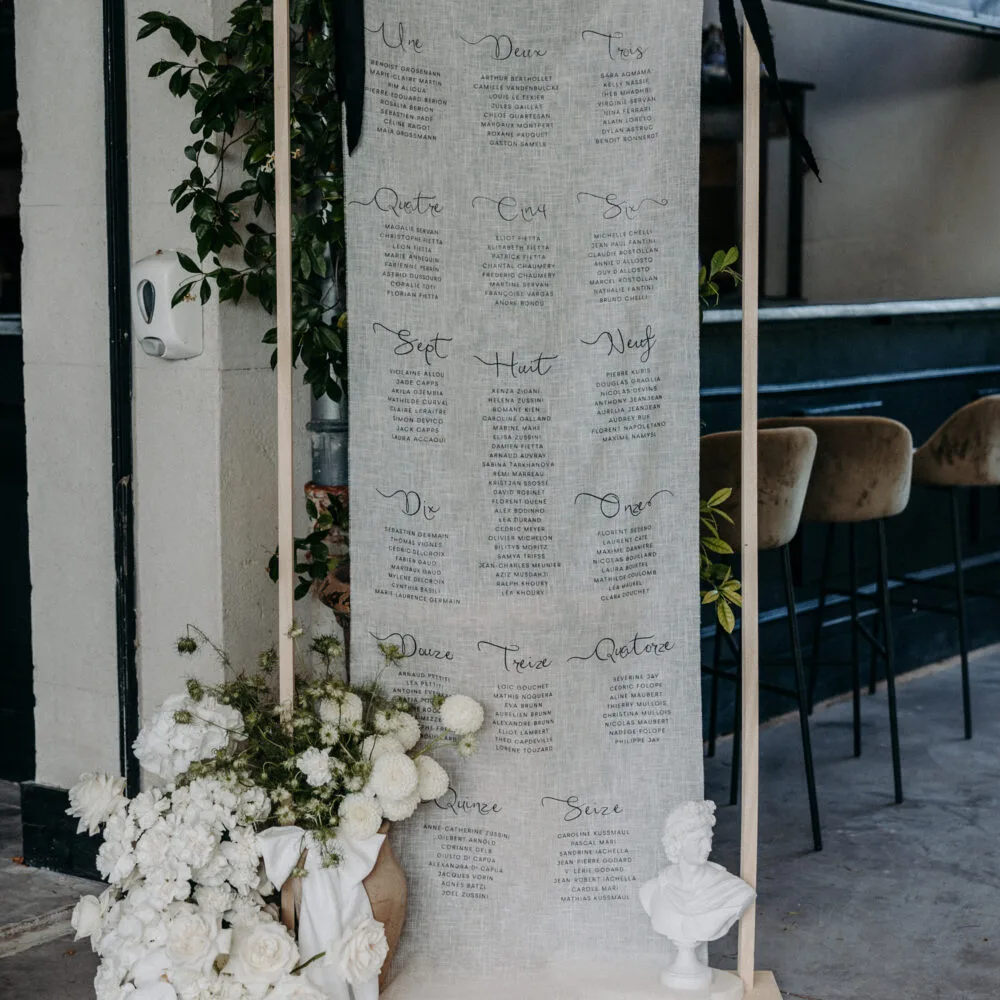 Une
BENOIST GROSSMANN
MARIE-CLAIRE MARTIN
RIM ALIOUA
PIERRE-EDOUARD BERION
ROSALIA BERION
SÉBASTIEN PADÉ
CÉLINE RAGOT
MAIA GROSSMANN
Deux
ARTHUR BERTHOLLET
CAMILLE VANDENBULCKE
LOUIS LE TEXIER
JULES GAILLAT
CHLOÉ QUARTESAN
MARGAUX MONTPERT
ROXANE PAUQUET
GASTON SAMELE
Trois
SARA AQMAMA
KELLY NASSIÉ
IHEB MHADHBI
VIRGINIE SERVAN
NINA FERRARI
ALAIN LORETO
DYLAN ASTRUC
BENOIT BONNEROT
Quatre
MAGALIE SERVAN
CHRISTOPHE FIETTA
LÉON FIETTA
MARIE ANDEQUIN
FABIENNE PERRIN
ASTRID DUSSOURD
CORALIE TOTI
FLORIAN FIETTA
Cinq
ELIOT FIETTA
ELISABETH FIETTA
PATRICK FIETTA
CHANTAL CHAUMERY
FRÉDÉRIC CHAUMERY
MARTINE SERVAN
FRANÇOISE VARGAS
ANDRÉ RONDU
Six
MICHELLE CHELLI
JEAN PAUL FANTINI
CLAUDIE ROSTOLLAN
ANNIE D'ALLOSTO
GUY D'ALLOSTO
MARCEL ROSTOLLAN
NATHALIE FANTINI
BRUNO CHELLI
Sept
VIOLAINE ALLOU
JADE CAPPS
AKILA DJEMBIA
MATHILDE CURVAL
CLAIRE LERAITRE
SIMON DEVICO
JACK CAPPS
LAURA ACCAOUI
Huit
KENZA ZIDANI
HELENA ZUSSINI
ROMANE RIEN
CAROLINE GALLAND
MARINE MAHÉ
ELISA ZUSSINI
DAMIEN FIETTA
ARNAUD AUVRAY
SABINA TARKHANOVA
RÉMI MARREAU
KRISTJAN SBOSSE
DAVID ROBINET
FLORENT SERVAN
ALEX BODINHO
LÉA DURAND
CÉDRIC MEYER
OLIVIER MICHELON
BILITYS MORITZ
SAMYA TRIFSS
JEAN-CHARLES MEUNIER
AZIZ MUSDAHJ
RALPH KHOURY
LÉA KHOURY
Neuf
PIERRE KURIS
DOUGLAS GRAGLIA
NICOLAS DEVINS
ANTHONY JEANJEAN
AURELIA JEANJEAN
AUDREY BUE
FLORENT NAPOLETANO
MAXIME NAMYSL
Dix
SEBASTIEN GERMAIN
THOMAS VIGNES
CÉDRIC DELCROIX
FABIEN GAUD
MARGAUX GAUD
MYLENE DELCROIX
CYNTHIA BASILI
MARIE LAURENCE GERMAIN
Onze
FLORENT
LAURENT CATÉ
MAXIME DANNIÈRE
NICOLAS BOUILLARD
LAURA
MATHILDE COULOMB
LÉA MAUREL
CLARA DOUCHET
Douze
ARNAUD PETTITI
LÉA PETTITI
ANTOINE
Treize
LOÏC GOUCHET
MATHIS NOGUERA
EVA BRUNN
AURELIEN BRUNN
ALEXANDRE BRUNN
ELIOT LAMBERT
THEO CAPDEVILLE
LORENE TOUZARD
Quatorze
SEVERINE JAY
CÉDRIC FOLOPE
ALINE MAUBERT
THIERRY MULLOIS
CHRISTINA MULLOIS
NICOLAS MAUBERT
NADEGE FOLOPE
PHILIPPE JAY
Quinze
ANNE-CATHERINE ZUSSINI
GILBERT ARNOLD
CORINNE DELB
GIUSTO DI CAPUA
ALEXANDRA DI CAPUA
JACQUES VORIN
AGNÈS RATZI
JOEL ZUSSINI
Seize
CAROLINE KUSSMAUL
PASCAL MARI
SANDRINE IACHELLA
JEAN PIERRE GODARD
VALÉRIE GODARD
JEAN-ROBERT IACHELLA
CAROLE MARI
MATHIAS KUSSMAUL